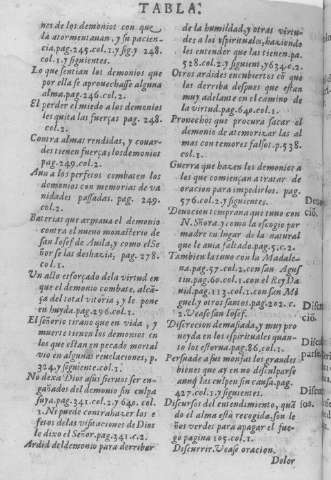 TABLA:
nes de los demonios con que
la atormentauan, y su pacien-
cia, pag. 245. col. 1. y sig. y 248.
col. 1. y siguientes.
Lo que sentian los demonios que
por ella se aprouechasse alguna
alma, pag. 246. col. 2.
El perder el miedo a los demonios
les quita las fuerças pag. 248.
col. 2.
Contra almas rendidas, y couar-
des tienen fuerças los demonios
pag. 249. col. 2.
Aun a los perfetos combaten los
demonios con memorias de va
nidades passadas. pag. 249.
col. 2.
Baterias que armaua el demonio
contra el nueuo monasterio de
san Iosef de Auila, y como el Se
ñor se las deshazia, pag. 278.
col. 1.
Vn alto esforçado de la virtud en
que el demonio combate, alcã-
ça del total vitoria, y le pone
en huyda. pag. 296. col. 1.
El señorio tirano que en vida, y
muerte tienen los demonios en
los que estan en pecado mortal
vio en algunas reuelaciones, p.
324. y siguiente. col. 1.
No dexa Dios a sus sieruos ser en-
gañados del demonio sin culpa
suya. pag. 341. col. 2. y 640. col.
1. Ni puede contrahazer los e
fetos de las visitaciones de Dios
le dixo el Señor. pag. 341. c. 2.
Ardid del demonio para derribar
de la humildad, y otras virtu-
des a los espirituales, haziendo
les entender que las tienen. pa.
528. col. 2. y siguient. y 634. c. 2.
Otros ardides encubiertos cõ que
los derriba despues que estan
muy adelante en el camino de
la virtud. pag. 640. col. 1.
Prouechos que procura sacar el
demonio de atemorizar las al
mas con temores falsos. p. 538.
col. 1.
Guerra que hazen los demonios a
los que comiençan a tratar de
oracion para impedirlos. pag.
576. col. 2. y siguientes.
Deuocion temprana que tuuo con
N. Señora. y como la escogio por
madre en lugar de la natural
que le auia faltado. pag. 5. c. 2.
Tambien la tuuo con la Madale-
na. pag. 57. col. 2. con san Agus
tin. pag. 60. col. 1. con el Rey Da
uid. pag. 113. col. 1. con san Mi
guel, y otros santos. pag. 202. c.
2. Vease san Iosef.
Discrecion demasiada, y muy pro
ueyda en los espirituales quan-
to les estorua. pag. 86. col. 1.
Persuade a sus monjas les grandes
bienes que ay en no disculparse
aunq̃ las culpen sin causa. pag.
427. col. 1. y siguientes.
Discursos del entendimiento, quã
do el alma está recogida, son le
ños verdes para apagar el fue-
go pagina 105. col. 1.
Discurrir. Vease oracion.
Dolor